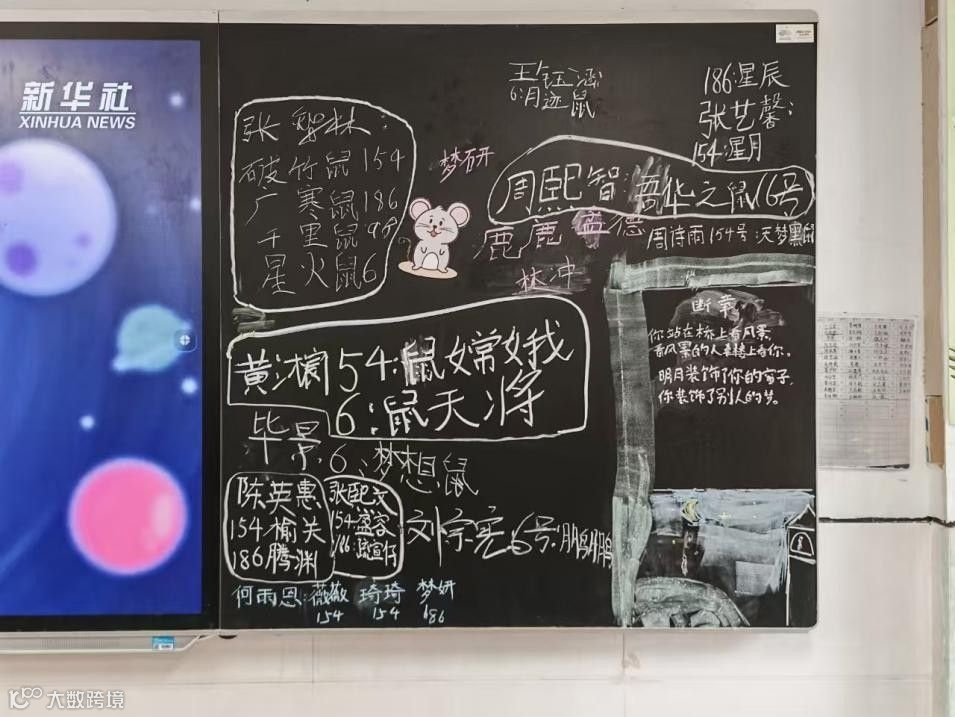 新华社
XINHUA NEWS
张 林：
破竹鼠154
广寒鼠186
千里鼠98
星火鼠6
梦研
王钰涵
6：月迹鼠
186：星辰
张艺馨：
154：星月
周熙智：吾华之鼠16号
周诗雨154号：天梦黑鼠
鹿鹿 孟德
林冲
断章：
你站在桥上看风景，
看风景的人在楼上看你。
明月装饰了你的窗子，
你装饰了别人的梦。
黄 54：鼠嫦娥
6：鼠天将
毕景
6、梦想鼠
陈英惠
154榆关
186腾渊
张熙文
154
186
刘宗 6号：鹏鹏
何雨恩：薇薇 琦琦 梦妍
154 154 686
大数跨境